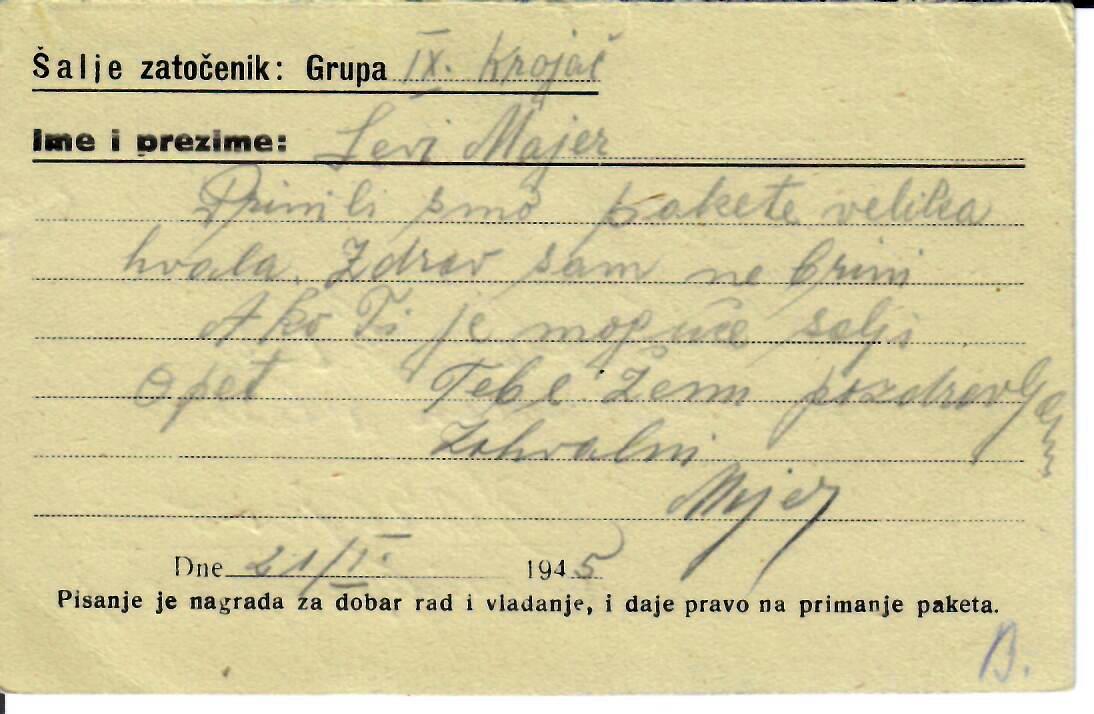 Šalje zatočenik: Grupa IX. Krojač
Ime i prezime: Levi Majer
Primili smo pakete velika
hvala. Zdrav sam ne brini
Ako Ti je moguće salji
opet Tebe Ženu pozdravljam
Zahvalni
Majer
Dne 21/I. 1945
Pisanje je nagrada za dobar rad i vladanje, i daje pravo na primanje paketa.
B.